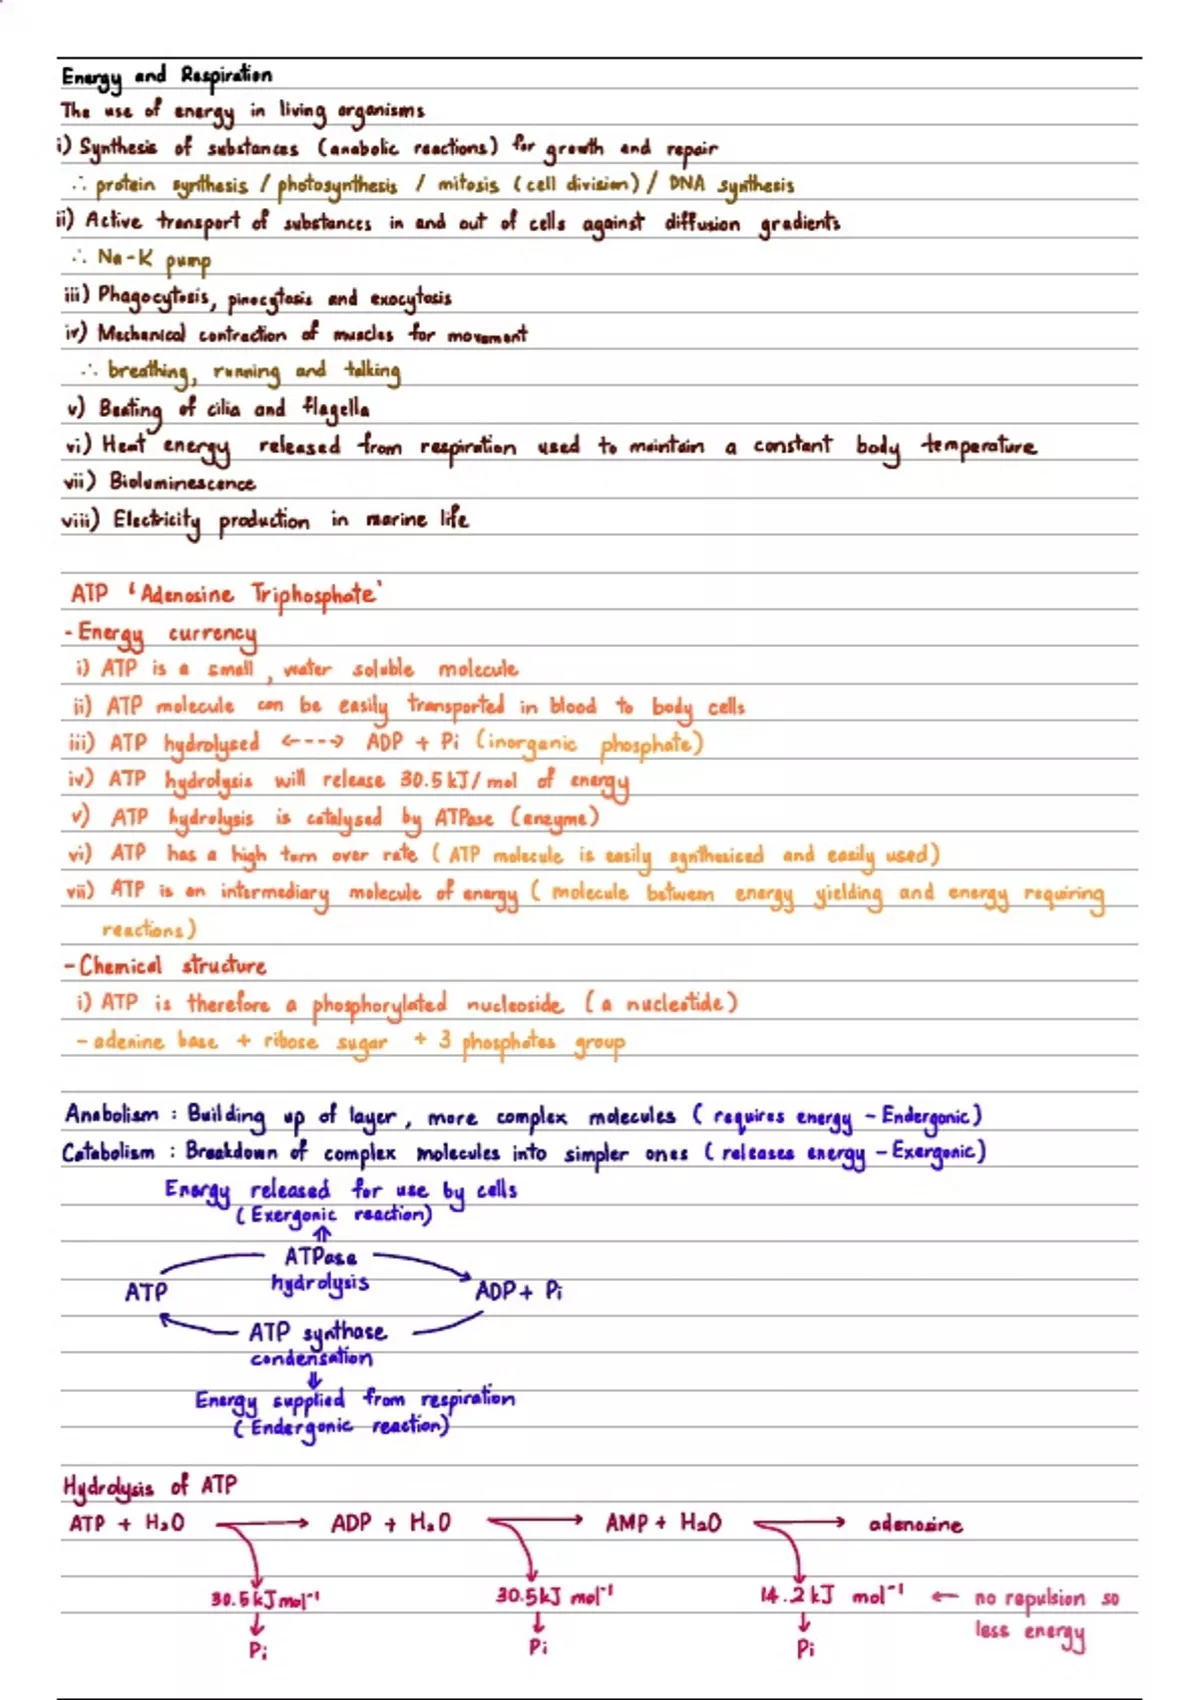 Energy and Respiration
The use of energy in living organisms
i) Synthesis of substances (anabolic reactions) for growth and repair
∴ protein synthesis / photosynthesis / mitosis (cell division) / DNA synthesis
ii) Active transport of substances in and out of cells against diffusion gradients
∴ Na-K pump
iii) Phagocytosis, pinocytosis and exocytosis
iv) Mechanical contraction of muscles for movement
∴ breathing, running and talking
v) Beating of cilia and flagella
vi) Heat energy released from respiration used to maintain a constant body temperature
vii) Bioluminescence
viii) Electricity production in marine life
ATP 'Adenosine Triphosphate'
- Energy currency
i) ATP is a small, water soluble molecule
ii) ATP molecule can be easily transported in blood to body cells
iii) ATP hydrolysed <---> ADP + Pi (inorganic phosphate)
iv) ATP hydrolysis will release 30.5 kJ/mol of energy
v) ATP hydrolysis is catalysed by ATPase (enzyme)
vi) ATP has a high turn over rate (ATP molecule is easily synthesiced and easily used)
vii) ATP is an intermediary molecule of energy (molecule between energy yielding and energy requiring
reactions)
- Chemical structure
i) ATP is therefore a phosphorylated nucleoside (a nucleotide)
- adenine base + ribose sugar + 3 phosphates group
Anabolism : Building up of layer, more complex molecules (requires energy - Endergonic)
Catabolism : Breakdown of complex molecules into simpler ones (releases energy - Exergonic)
Energy released for use by cells
(Exergonic reaction)
⇑
ATPase
hydrolysis
ATP ADP + Pi
ATP synthase
condensation
⇓
Energy supplied from respiration
(Endergonic reaction)
Hydrolysis of ATP
ATP + H₂O → ADP + H₂O → AMP + H₂O → adenosine
30.5 kJ mol⁻¹ 30.5 kJ mol⁻¹ 14.2 kJ mol⁻¹ ← no repulsion so
less energy
↓ ↓ ↓
Pi Pi Pi